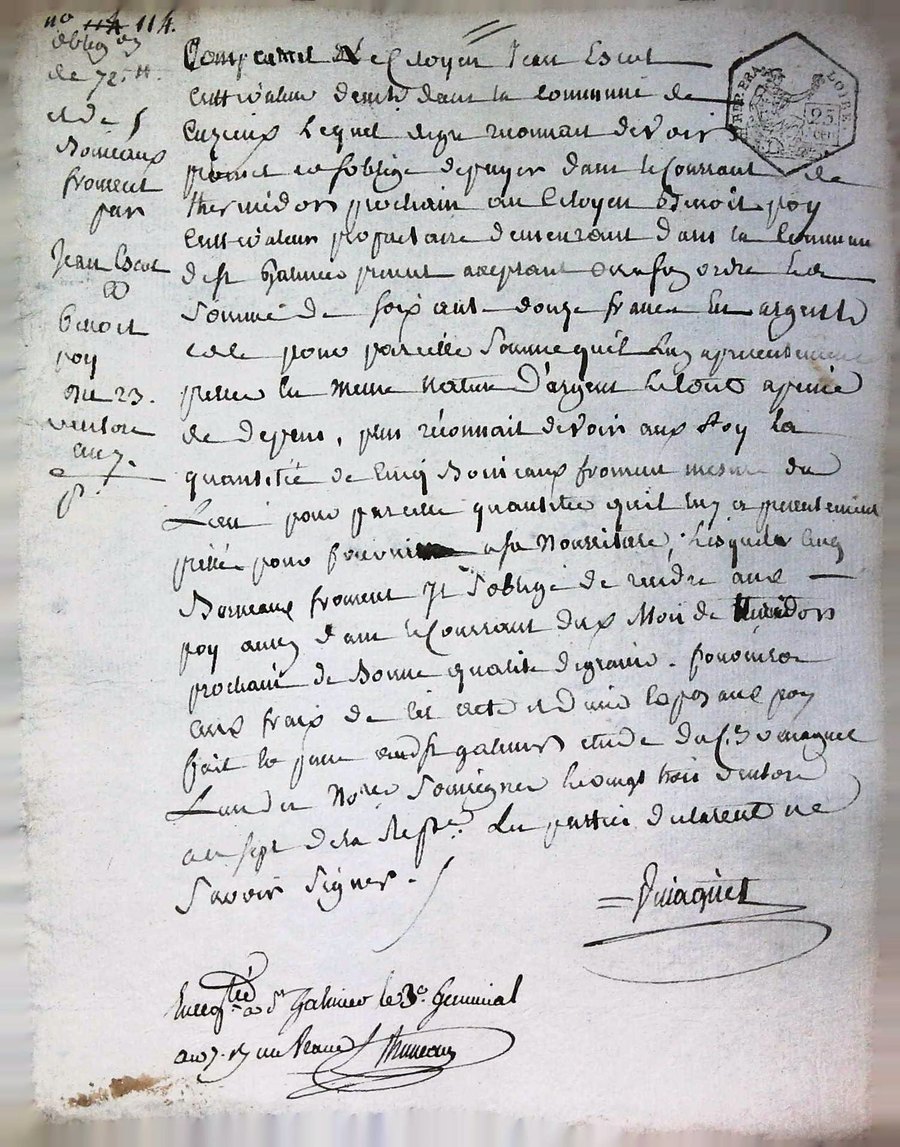 no 114 114.
oblig on
de 72.tt
et de 5
Boiseaux
froment
par
Jean Escot
a
benoit
poy
du 23.
ventose
an 7.
Comparait le Citoyen Jean Escot
Cultivateur demt dans la commune de
Cuzieux Lequel de gre reconnait devoir
promet et soblige de payer dans le Courrant de
thermidor prochain au Citoyen Benoit poy
Cultivateur propriaitaire demeurant dans la Commune
de st Galmier present aceptant ou a son ordre La
Somme de soixante douze francs En argent
pour pareille Somme quil Luy a presentement
pretée En meme Nature D'argent Le tout a peine
de depens, plus réconnait devoir aux d. poy la
quantitée de Cinq Boiseaux froment mesure du
Lieu pour pareille quantitée quil luy a presentement
pretée pour fournir a sa Nourriture, Lesquels Cinq
Boiseaux froment Il s'oblige de rendre aud
poy aussy dans le Courrant dux Moi de thermidor
prochain de Bonne qualité de graine.
aux frais de Cet acte et dune Exp on aud poy
fait Et passé aud st galmier etude du C.
Lun des Nores Soussignes Le vingt trois Ventose
an sept de la Repue. Les parties declarent ne
Savoir Signer.
REP. FRA.
LOIRE
25
cen
Enregistré a St Galmier le 3e Germinal
an 7. r. un franc